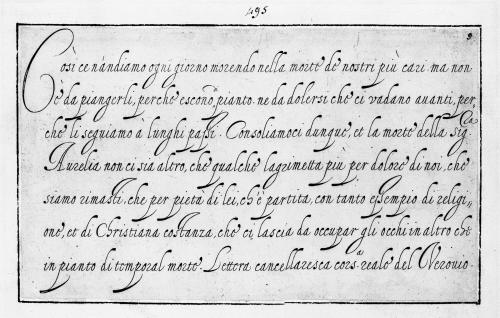 495
9
Così ce n'andiamo ogni giorno morendo nella morte de nostri più cari. ma non
è da piangerli, perche escono pianto. ne da dolersi che ci vadano auanti, per
che li seguiamo à lunghi passi. Consoliamoci dunque, et la morte della Sig.ra
Aurelia non ci sia altro, che qualche lagrimetta più per dolore di noi, che
siamo rimasti, che per pietà di lei, ch'è partita, con tanto essempio di religi„
one, et di Christiana costanza, che ci lascia da occupar gli occhi in altro che
in pianto di temporal morte. Lettera cancellaresca cors.a reale del Verouio.